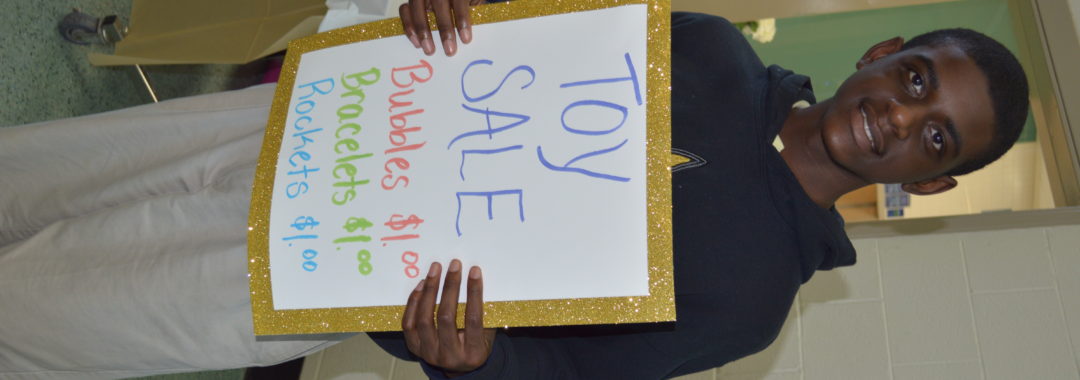 TOY
SALE
Bubbles $1.00
Bracelets $1.00
Rockets $1.00